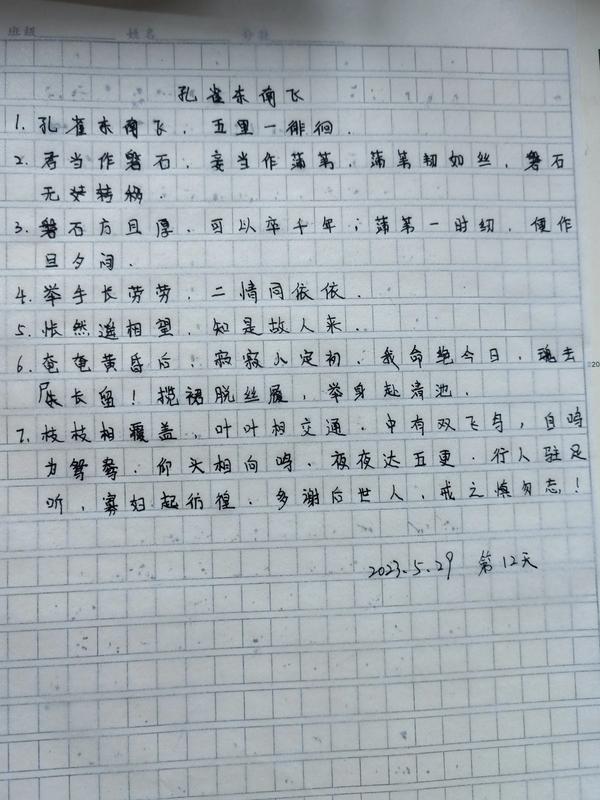 班级 姓名
孔雀东南飞
1. 孔雀东南飞，五里一徘徊．
2. 君当作磐石，妾当作蒲苇，蒲苇韧如丝，磐石
无转移．
3. 磐石方且厚，可以卒千年；蒲苇一时纫，便作
旦夕间．
4. 举手长劳劳，二情同依依．
5. 怅然遥相望，知是故人来．
6. 奄奄黄昏后，寂寂人定初，我命绝今日，魂去
尸长留！揽裙脱丝履，举身赴清池．
7. 枝枝相覆盖，叶叶相交通．中有双飞鸟，自鸣
为鸳鸯．仰头相向鸣，夜夜达五更．行人驻足
听，寡妇起彷徨．多谢后世人，戒之慎勿忘！
2023.5.29 第12天
20